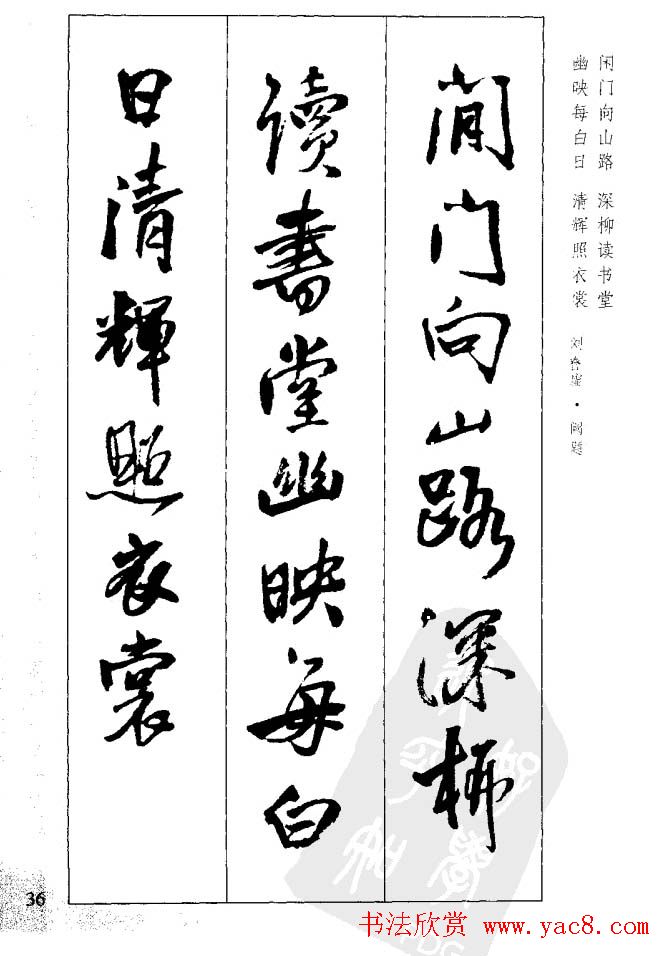 閒门向山路深柳
读書堂幽映每白
日清輝照衣裳
闲门向山路 深柳读书堂
幽映每白日 清辉照衣裳 刘眘虚·阙题
36
书法欣赏 www.yac8.com